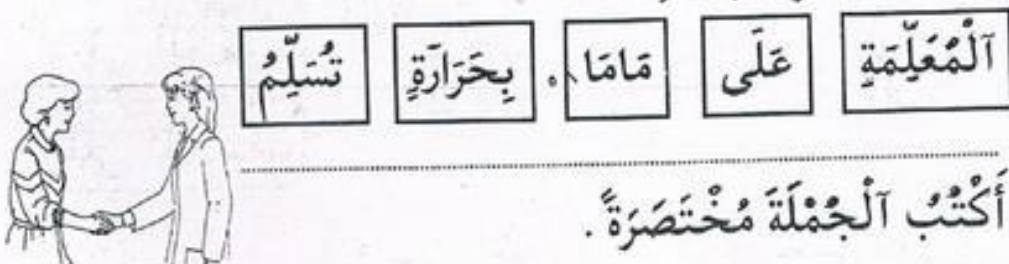 ٱلْمُعَلِّمَةِ عَلَى مَامَا . بِحَرَارَةٍ تُسَلِّمُ
أَكْتُبُ ٱلْجُمْلَةَ مُخْتَصَرَةً .